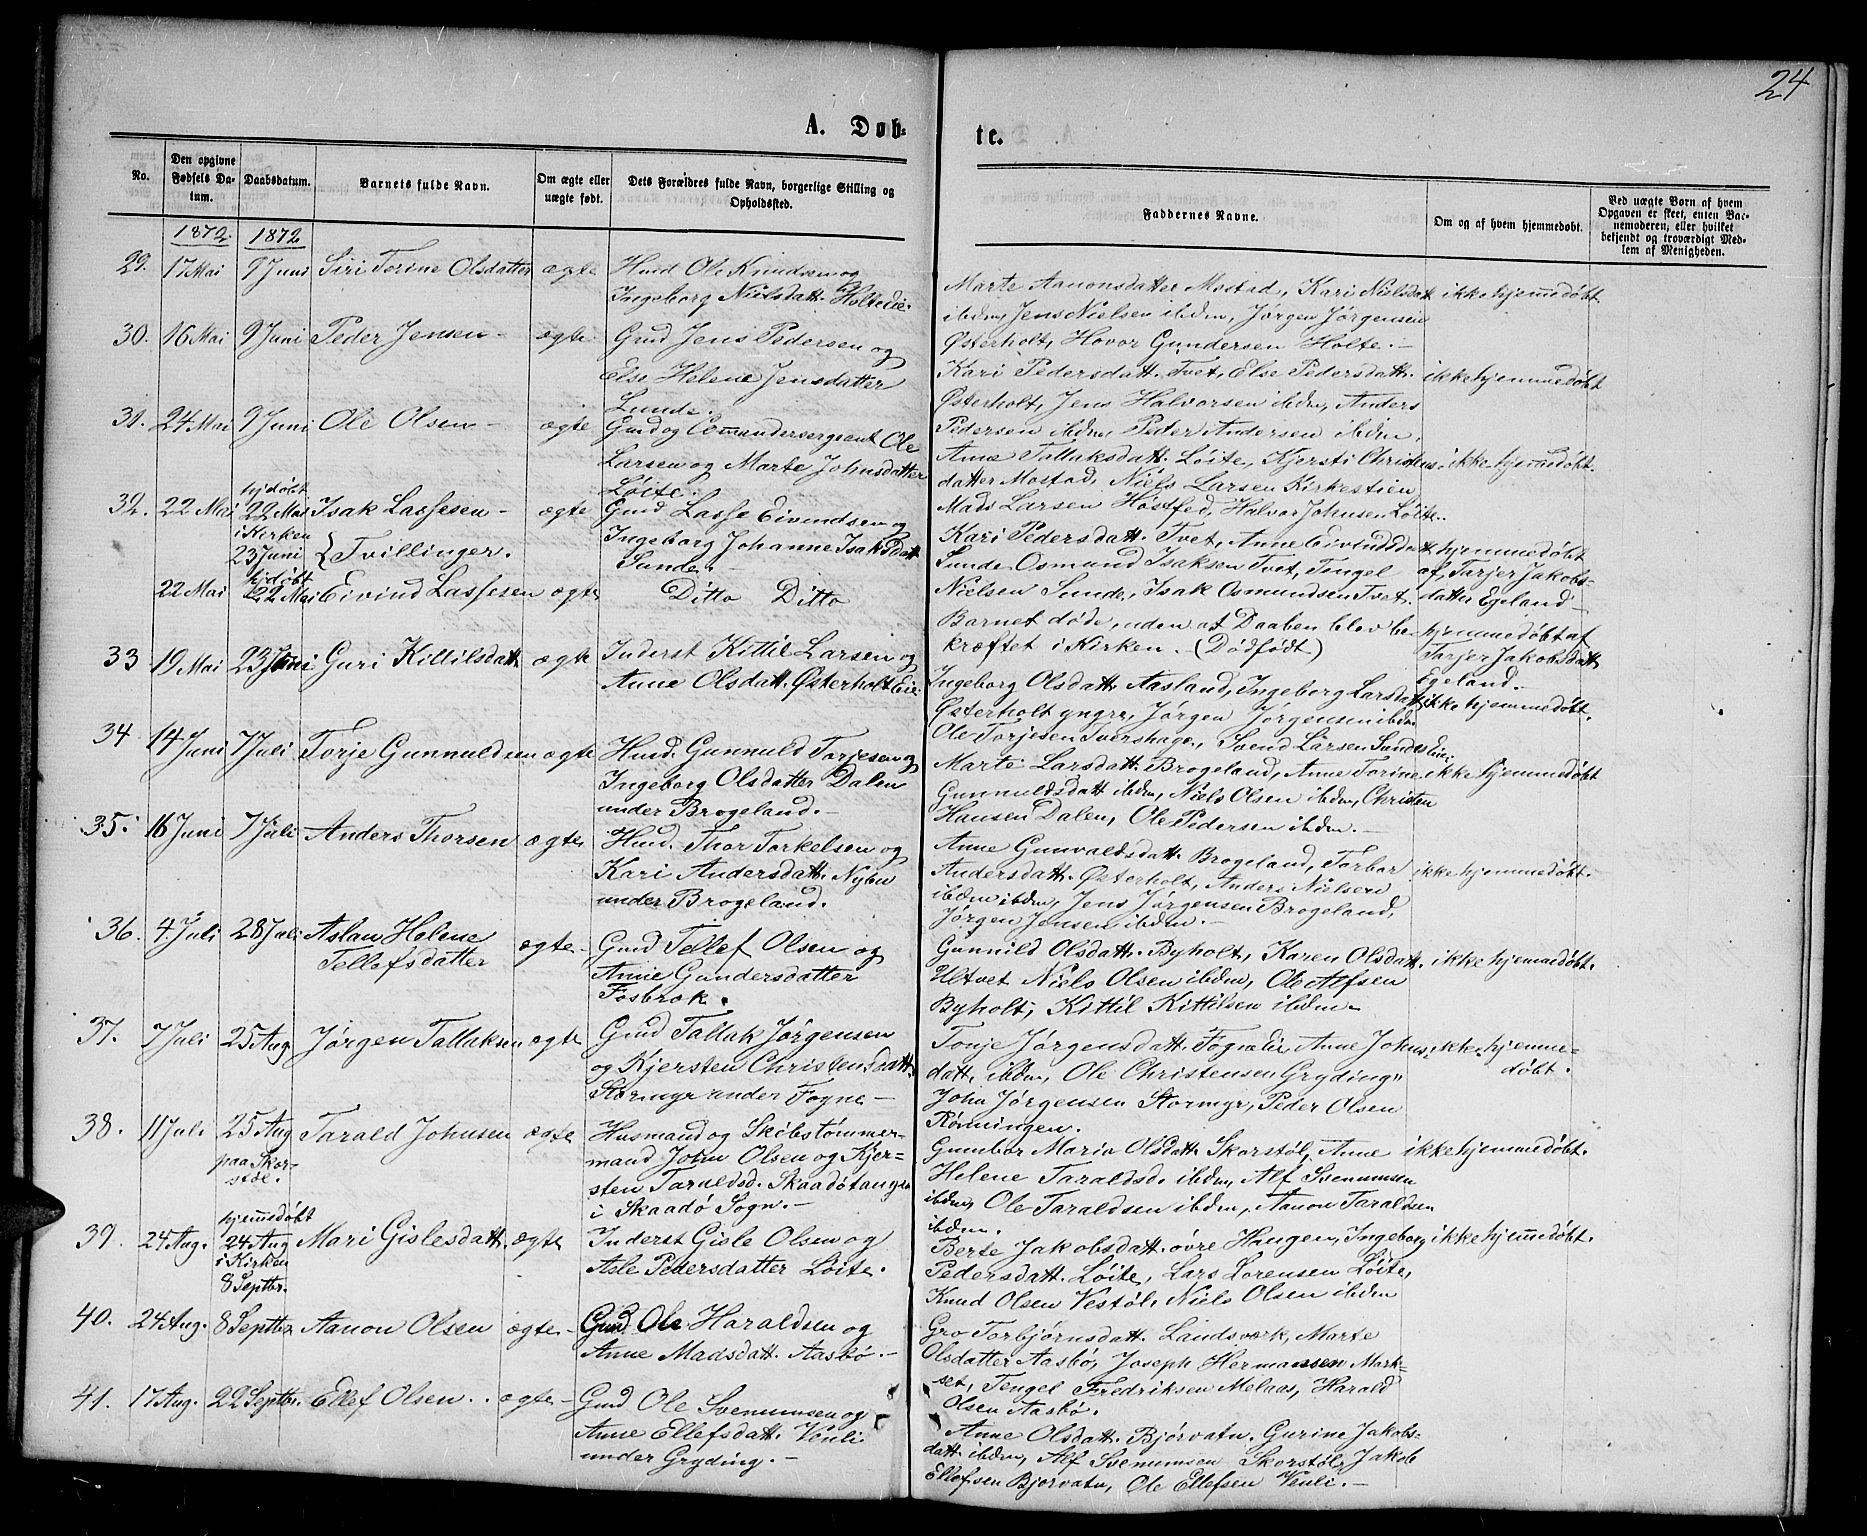 24
A. Døbte.
No.
Den opgivne Fødsels Datum.
Daabsdatum.
Barnets fulde Navn.
Om ægte eller uægte født.
Dets Forældres fulde Navn, borgerlige Stilling og Opholdssted.
Faddernes Navne.
Om og af hvem hjemmedøbt.
Ved uægte Børn af hvem Opgaven er skeet, enten Barnemoderen, eller hvilket bekjendt og troværdigt Medlem af Menigheden.
1872. 1872
29. 17 Mai 9 Juni Siri Torine Olsdatter ægte
Husmd Ole Knudsen og
Ingeborg Nielsdatt. Holteeie.
Marte Aanonsdatter Mostad, Kari Nielsdatt ikke hjemmedøbt.
ibdm, Jens Nielsen ibdm, Jørgen Jørgensen
Østerholt, Hovor Gundersen Holte.-
30. 16 Mai 9 Juni Peder Jensen- ægte
Gmd Jens Pedersen og
Else Helene Jensdatter
Lunde.
Kari Pedersdatt. Tvet, Else Pedersdatt. ikke hjemmedøbt
Østerholt, Jens Halvorsen ibdm, Anders
Pedersen ibdm, Peder Andersen ibdm.
31. 24 Mai 9 Juni Ole Olsen- ægte
Gmd og Commandersergeant Ole
Larsen og Marte Johnsdatter
Løite.
Anne Tallaksdatt. Løite, Kjersti Christens- ikke hjemmedøbt.
datter Mostad, Niels Larsen Kirkestien
Mads Larsen Høstfed, Halvor Johnsen Løite.
32. 22 Mai hjdøbt 22 Mai i Kirken 23 Juni Isak Lassesen- ægte
{Tvillinger.
Gmd Lasse Eivindsen og
Ingeborg Johanne Isaksdatt
Sunde.-
Kari Pedersdatt. Tvet, Anne Eivindsdatt hjemmedøbt
Sunde, Osmund Isaksen Tvet, Tengel af, Tarjer Jakobs-
Nielsen Sunde, Isak Osmundsen Tvet. datter Egeland-
22 Mai hjdøbt 22 Mai Eivind Lassesen ægte
Ditto Ditto
Barnet døde, uden at Daaben blev be- hjemmedøbt af
kræftet i Kirken.-(Dødfødt) Tarjer Jakobsdatt
Egeland.-
33 19 Mai 23 Juni Guri Kittilsdatt. ægte
Inderst Kittil Larsen og
Anne Olsdatt. Østerholt Eie
Ingeborg Olsdatt. Aasland, Ingeborg Larsdatt ikke hjemmedøbt.
Østerholt yngre, Jørgen Jørgensen ibdm
Ole Torjesen Tvershage, Svend Larsen Sundes Eie.
34 14 Juni 7 Juli Torje Gunnuldsen ægte
Husmd. Gunnuld Torjesen og
Ingeborg Olsdatter Dalen
under Brogeland.-
Marte Larsdatt. Brogeland, Anne Torine ikke hjemmedøbt
Gunnuldsdatt ibdm, Niels Olsen ibdm, Christen
Hansen Dalen, Ole Pedersen ibdm.-
35. 16 Juni 7 Juli Anders Thorsen ægte
Husmd. Thor Torkelsen og
Kari Andersdatt. Nybu
under Brogeland.
Anne Gunvaldsdatt. Brogeland, Torbor
Andersdatt. Østerholt, Anders Nielsen ikke hjemmedøbt.
ibdm ibdm, Jens Jørgensen Brogeland,
Jørgen Jensen ibdm.-
36. 4. Juli 28 Juli Aslau Helene
Tellefsdatter ægte-
Gmd Tellef Olsen og
Anne Gundersdatter
Fosbrok.
Gunnild Olsdatt. Byholt, Karen Olsdatt. ikke hjemmedøbt.
Ultvet Niels Olsen ibdm, Ole Alfsen
Byholt, Kittil Kittilsen ibdm-
37. 7 Juli 25 Aug. Jørgen Tallaksen ægte
Gmd Tallak Jørgensen
og Kjersten Christensdatt.
Stormyr under Fogne-
Tonje Jørgensdatt. Fogne Eie, Anne Johns- ikke hjemme-
datt. ibdm, Ole Christensen Gryding, døbt.
John Jørgensen Stormyr, Peder Olsen
Rønningen.
38. 11 Juli 25 Aug. paa Skorstøl. Tarald Johnsen ægte
Husmand og Skibstømmer-
mand John Olsen og Kjer-
sten Taraldsd. Skaadøtangen
i Skaadø Sogn.-
Gunbor Maria Olsdatt. Skorstøl, Anne ikke hjemmedøbt.
Helene Taraldsd. ibdm, Alf Svenumsen
ibdm, Ole Taraldsen ibdm, Aanon Taraldsen
ibdm.
39. 24 Aug. hjemmedøbt 24 Aug i Kirken 8 Septbr. Mari Gislesdatt. ægte
Inderst Gisle Olsen og
Asle Pedersdatter Løite.
Berte Jakobsdatt. øvre Haugen, Ingeborg ikke hjemmedøbt.
Pedersdatt. Løite, Lars Lorensen Løite,
Knud Olsen Vestøl, Niels Olsen ibdm
40. 24 Aug. 8 Septbr. Aanon Olsen ægte-
Gmd Ole Haraldsen og
Anne Madsdatt. Aasbø.-
Gro Torbjørnsdatt. Landsverk, Marte
Olsdatter Aasbø, Joseph Hermansen Mark-
set, Tengel Fredriksen Melaas, Harald
Olsen Aasbø.
41. 17 Aug. 22 Septbr. Ellef Olsen. ægte-
Gmd Ole Svenumsen og
Anne Ellefsdatt. Venli
under Gryding.-
Anne Olsdatt. Bjørvatn, Gurine Jakobs-
datt. ibdm, Alf Svenumsen Skorstøl, Jakob
Ellefsen Bjorvatn, Ole Ellefsen Venli.-